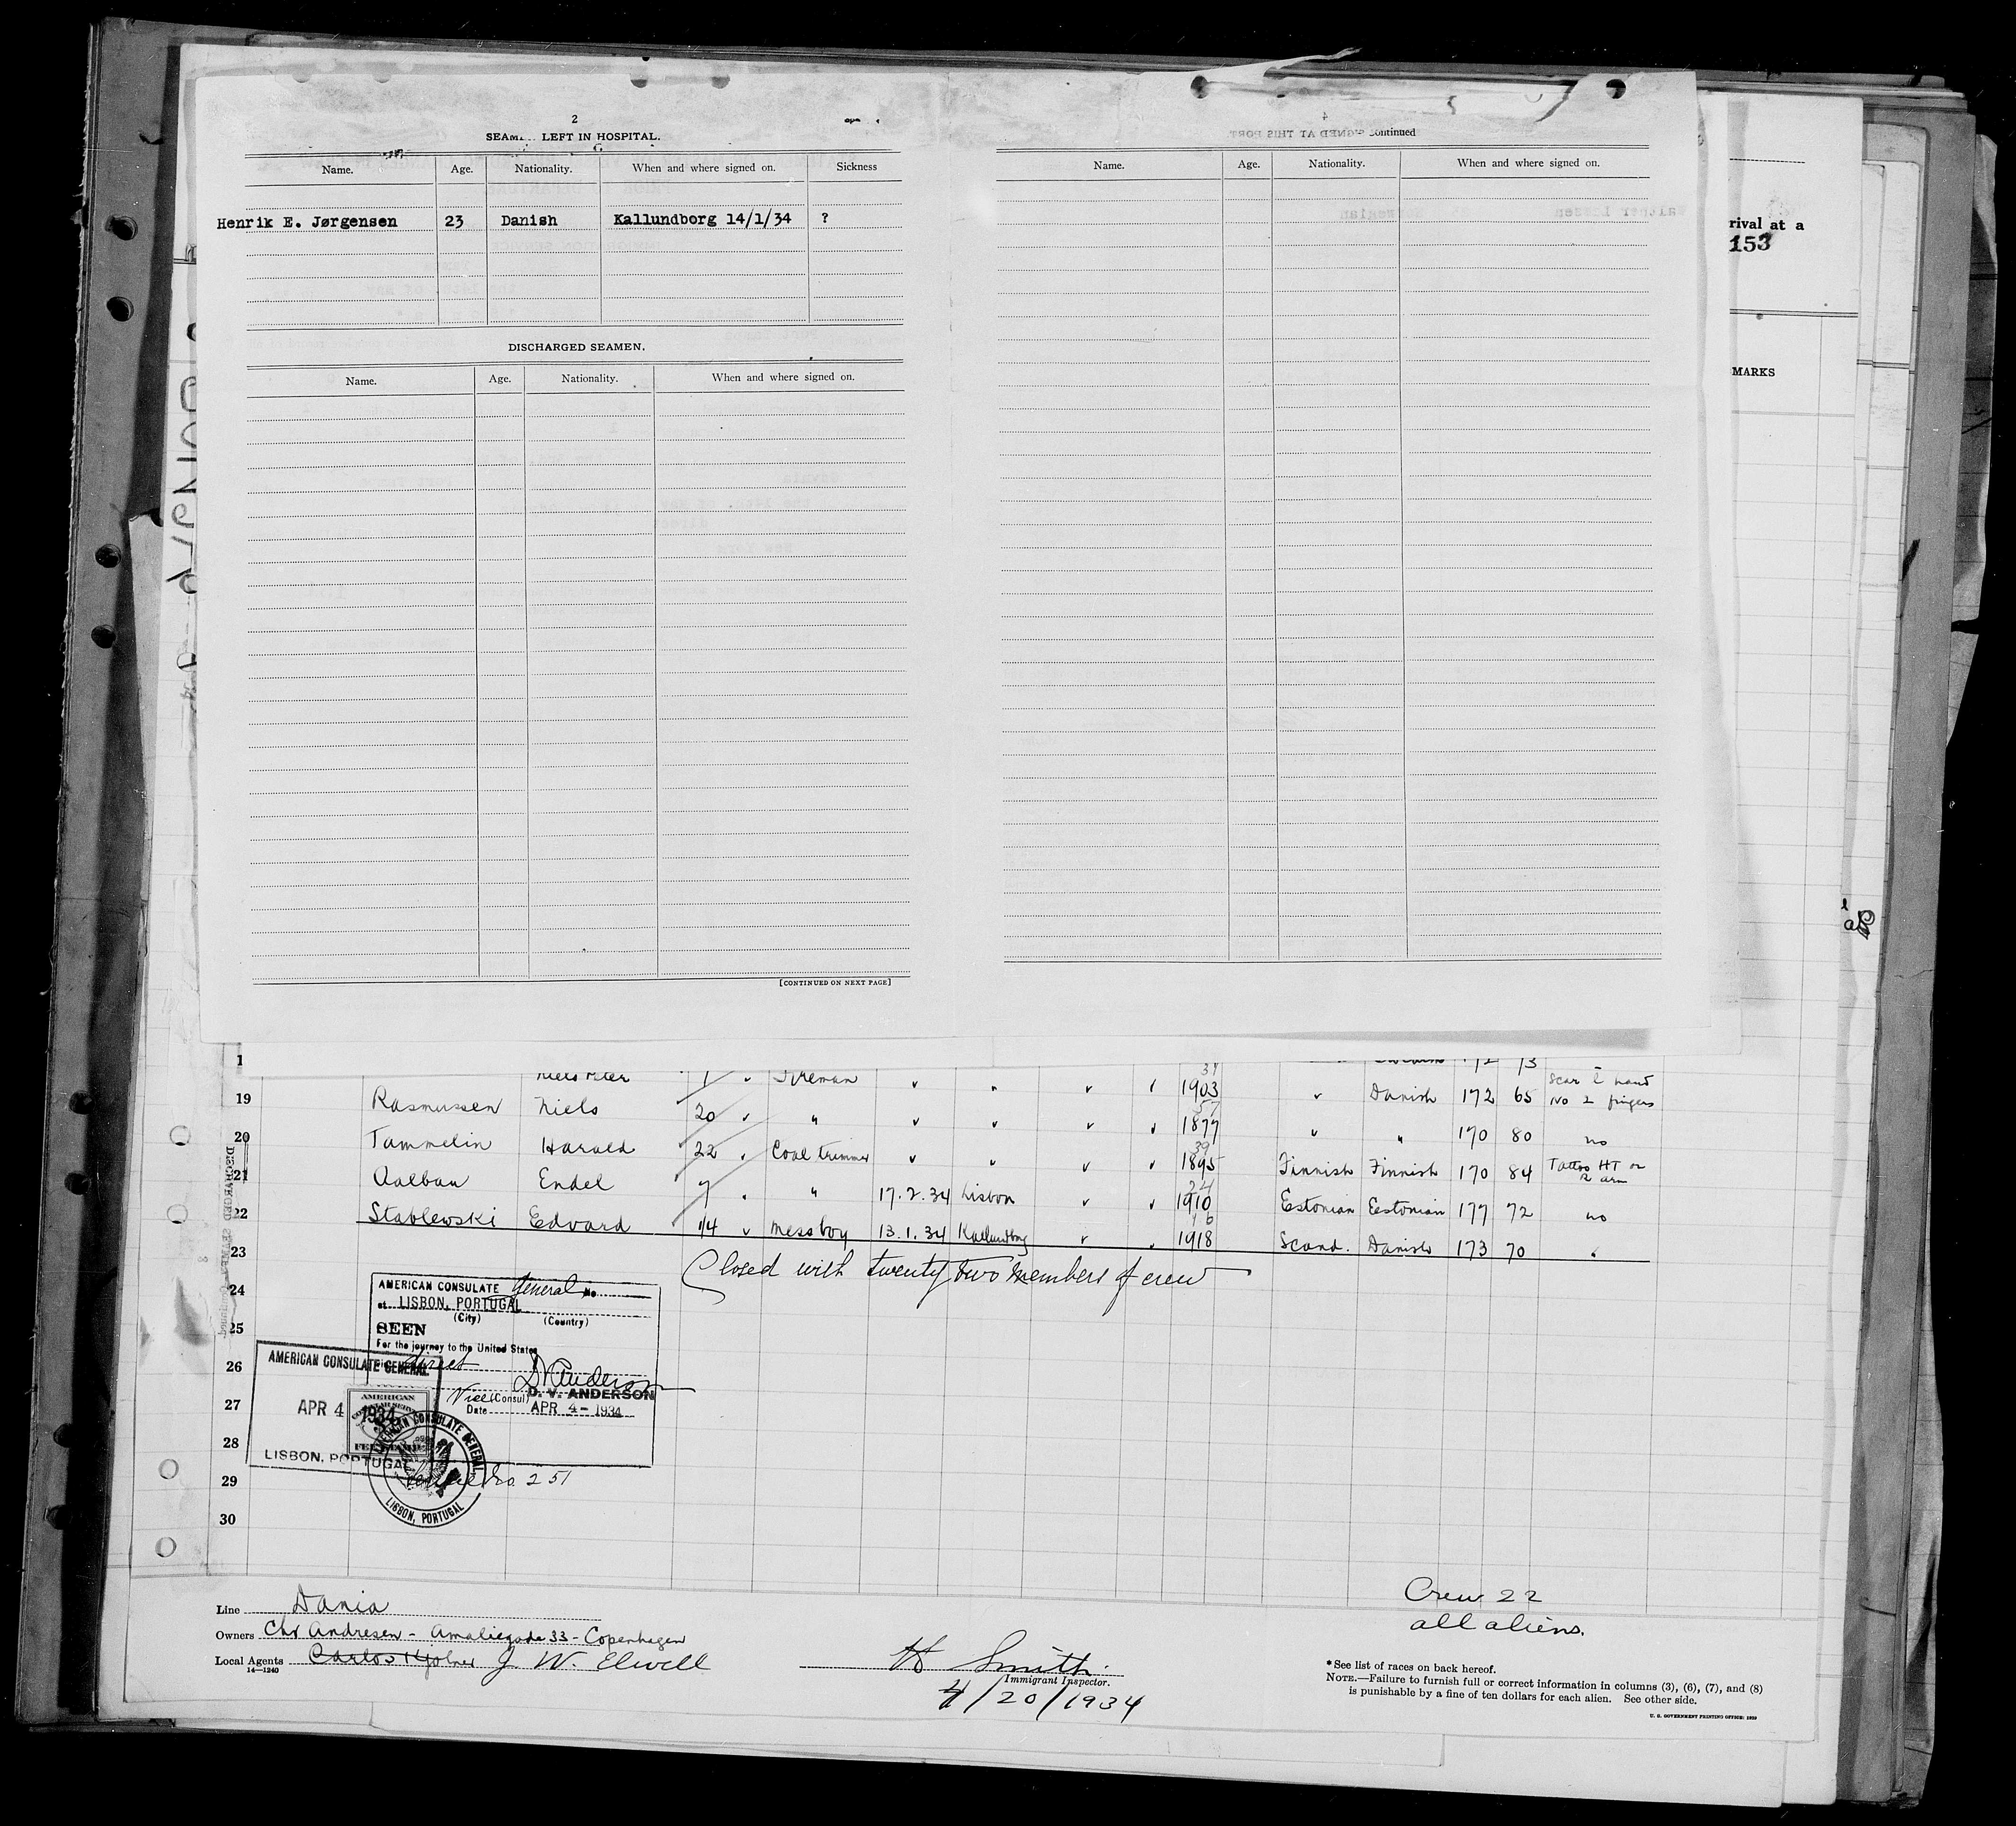 2
SEAM LEFT IN HOSPITAL.
Name. Age. Nationality. When and where signed on. Sickness
Henrik E. Jørgensen 23 Danish Kallundborg 14/1/34 ?
DISCHARGED SEAMEN.
Name. Age. Nationality. When and where signed on.
[CONTINUED ON NEXT PAGE]
4
SIGNED AT THIS PORT continued
Name. Age. Nationality. When and where signed on.
rival at a
153
MARKS
31
Niels Peter 1 " Fireman " " " " 1903 " Danish 172 65 Scar hand No 2 fingers
57
19 Rasmussen Niels 20 " " " " " " 1877 " " 170 80 no
39
20 Tammelin Harald 22 " Coal trimmer " " " " 1895 Finnish Finnish 170 84 Tattoo HT on R arm
24
21 Aalbau Endel 7 " " 17.2.34 Lisbon " " 1910 Estonian Eestonian 177 72 no
16
22 Stablewski Edvard 1/4 " Messboy 13.1.34 Kallundborg " " 1918 Scand. Danish 173 70 "
23
Closed with twenty two members of crew
24
25
26
27
28
29
30
AMERICAN CONSULATE General No.
at LISBON, PORTUGAL
(City) (Country)
SEEN
For the journey to the United States
direct
D V Anderson
D. V. ANDERSON
Vice (Consul)
Date APR 4 - 1934
AMERICAN CONSULATE GENERAL
APR 4 1934
LISBON, PORTUGAL
AMERICAN
AMERICAN CONSULATE GENERAL
LISBON, PORTUGAL
No. 251
Line Dania
Owners Chr Andresen - Amaliegade 33 - Copenhagen
Local Agents Carlos Kjolner J. W. Elwell
14—1240
H Smith
Immigrant Inspector.
4/20/1934
Crew 22
all aliens.
* See list of races on back hereof.
NOTE.—Failure to furnish full or correct information in columns (3), (6), (7), and (8)
is punishable by a fine of ten dollars for each alien. See other side.
U. S. GOVERNMENT PRINTING OFFICE: 1929